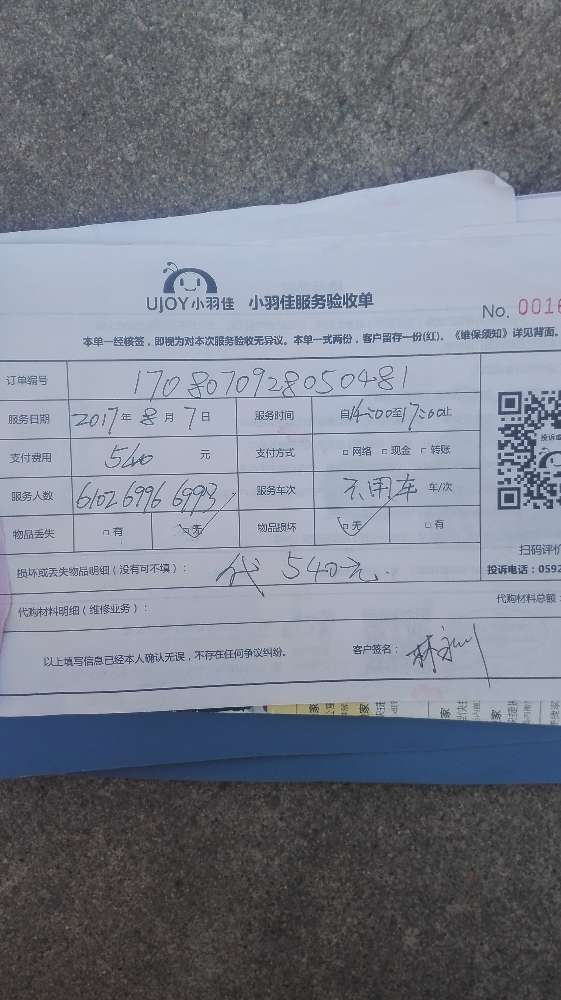 UJOY小羽佳 小羽佳服务验收单
No. 0016
本单一经核签，即视为对本次服务验收无异议。本单一式两份，客户留存一份(红)。《维保须知》详见背面。
订单编号 1708070928050481
服务日期 2017年8月7日 服务时间 自14:00至17:00止
支付费用 540 元 支付方式 □网络 □现金 □转账
服务人数 6102 6996 6993 服务车次 不用车 车/次
物品丢失 □有 □无 物品损坏 □无 □有
扫码评价
损坏或丢失物品明细（没有可不填）： 代 540元
投诉电话：0592
代购材料明细（维修业务）： 代购材料总额：
以上填写信息已经本人确认无误，不存在任何争议纠纷。 客户签名：